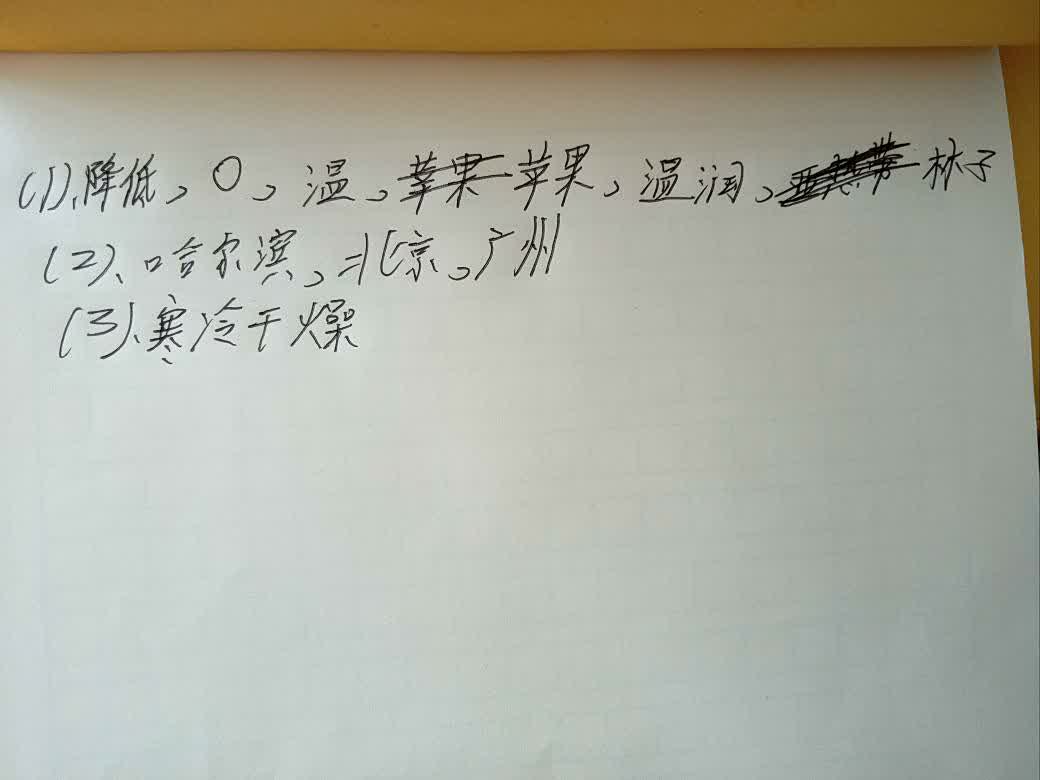 (1)、降低、0、温、苹果、温润、林子
(2)、哈尔滨、北京、广州
(3)、寒冷干燥